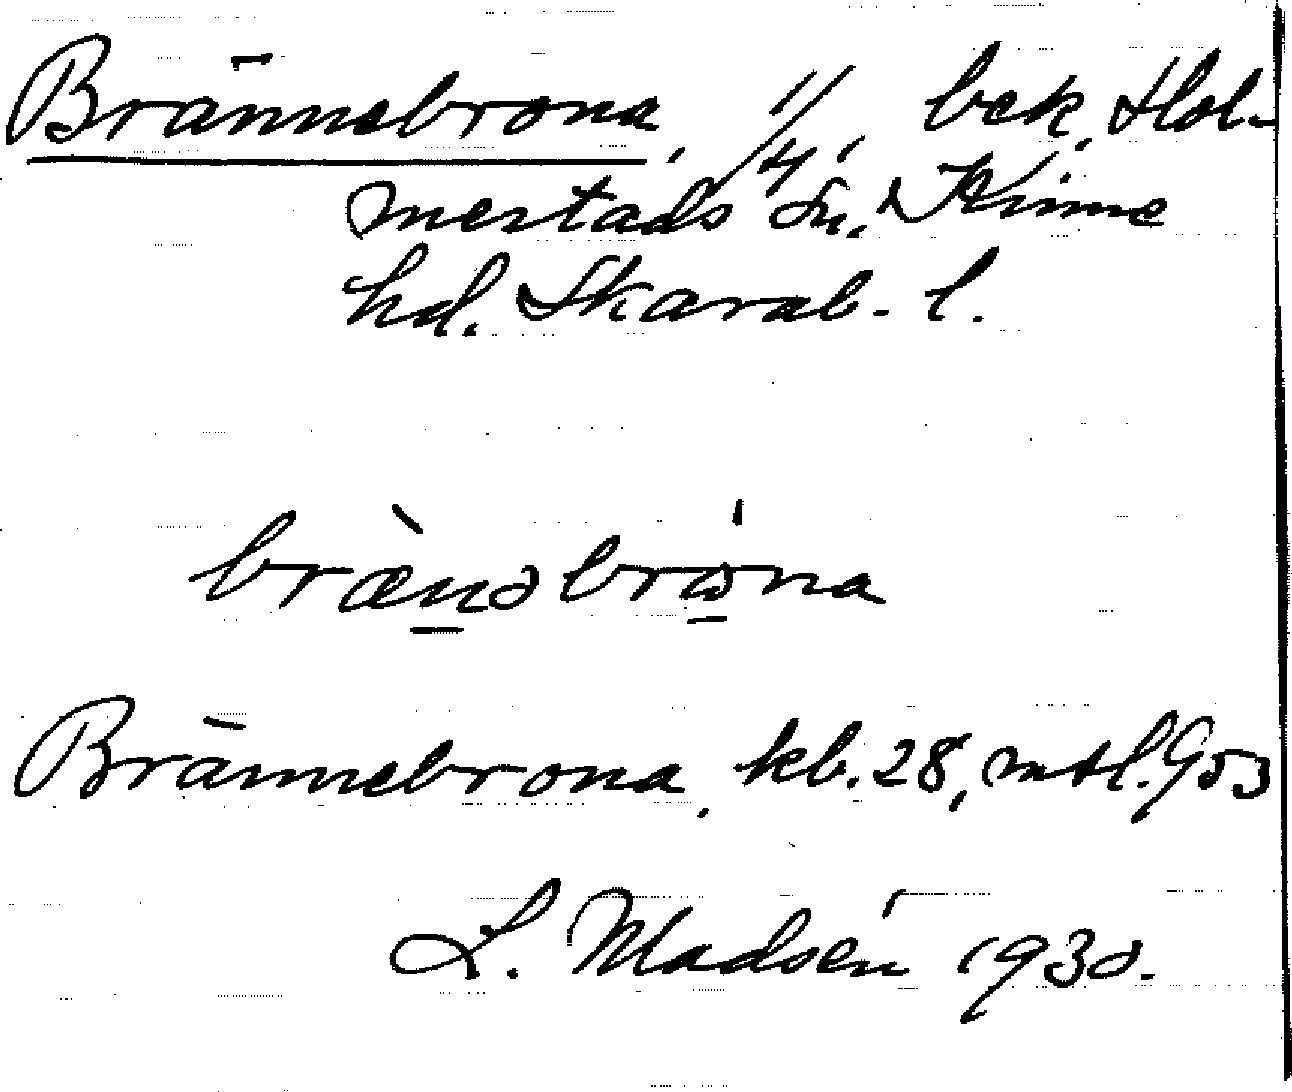 Brännebrona, 1/4, bek, Hol-
mestads sn, Kinne
hd. Skarab. l.
brænəbrona
Brännebrona, kb. 28, mtl. 903
L. Madsén 1930.